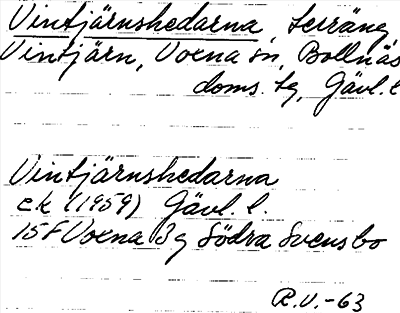 Vintjärnshedarna, terräng,
Vintjärn, Voxna sn, Bollnäs
doms. tg, Gävl. l
Vintjärnshedarna
ek (1959) Gävl. l.
15F Voxna 3g Södra Svensbo
R.V.-63